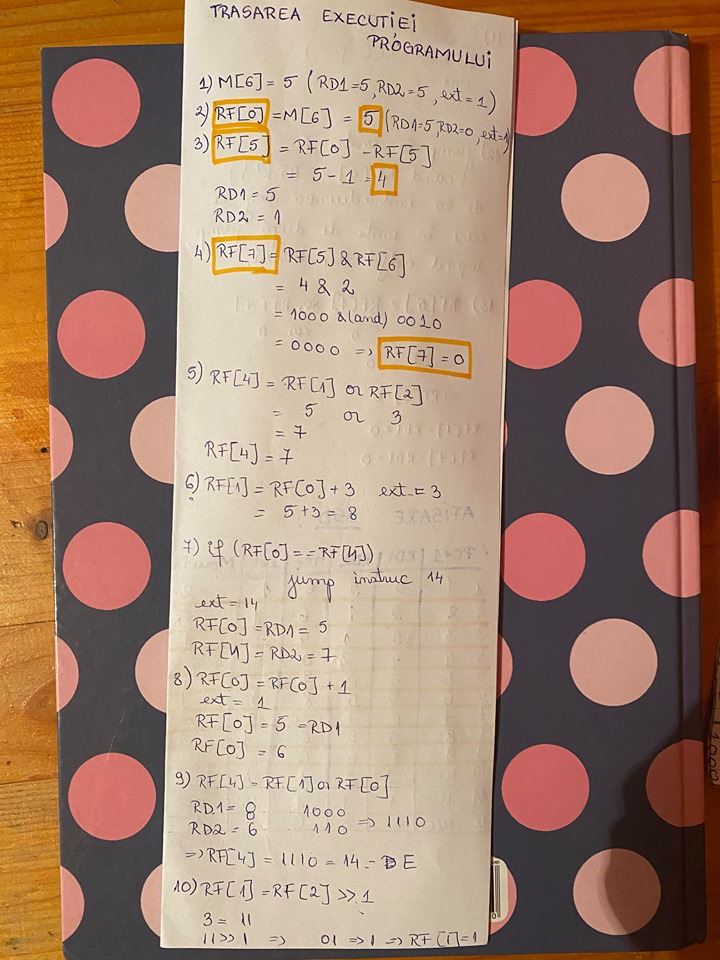 TRASAREA EXECUTIEI
PROGRAMULUI
1) M[6] = 5 (RD1=5, RD2=5, ext=1)
2) RF[0] = M[6] = 5 (RD1=5, RD2=0, ext=1)
3) RF[5] = RF[0] - RF[5]
= 5 - 1 = 4
RD1 = 5
RD2 = 1
4) RF[7] = RF[5] & RF[6]
= 4 & 2
= 1000 &(and) 0010
= 0000 => RF[7] = 0
5) RF[4] = RF[1] or RF[2]
= 5 or 3
= 7
RF[4] = 7
6) RF[1] = RF[0] + 3 ext = 3
= 5+3 = 8
7) if (RF[0] == RF[4])
jump instruc 14
ext = 14
RF[0] = RD1 = 5
RF[4] = RD2 = 7
8) RF[0] = RF[0] + 1
ext = 1
RF[0] = 5 = RD1
RF[0] = 6
9) RF[4] = RF[1] or RF[0]
RD1 = 8 1000
RD2 = 6 110 => 1110
=> RF[4] = 1110 = 14 - E
10) RF[1] = RF[2] >> 1
3 = 11
11 >> 1 => 01 => 1 => RF[1] = 1